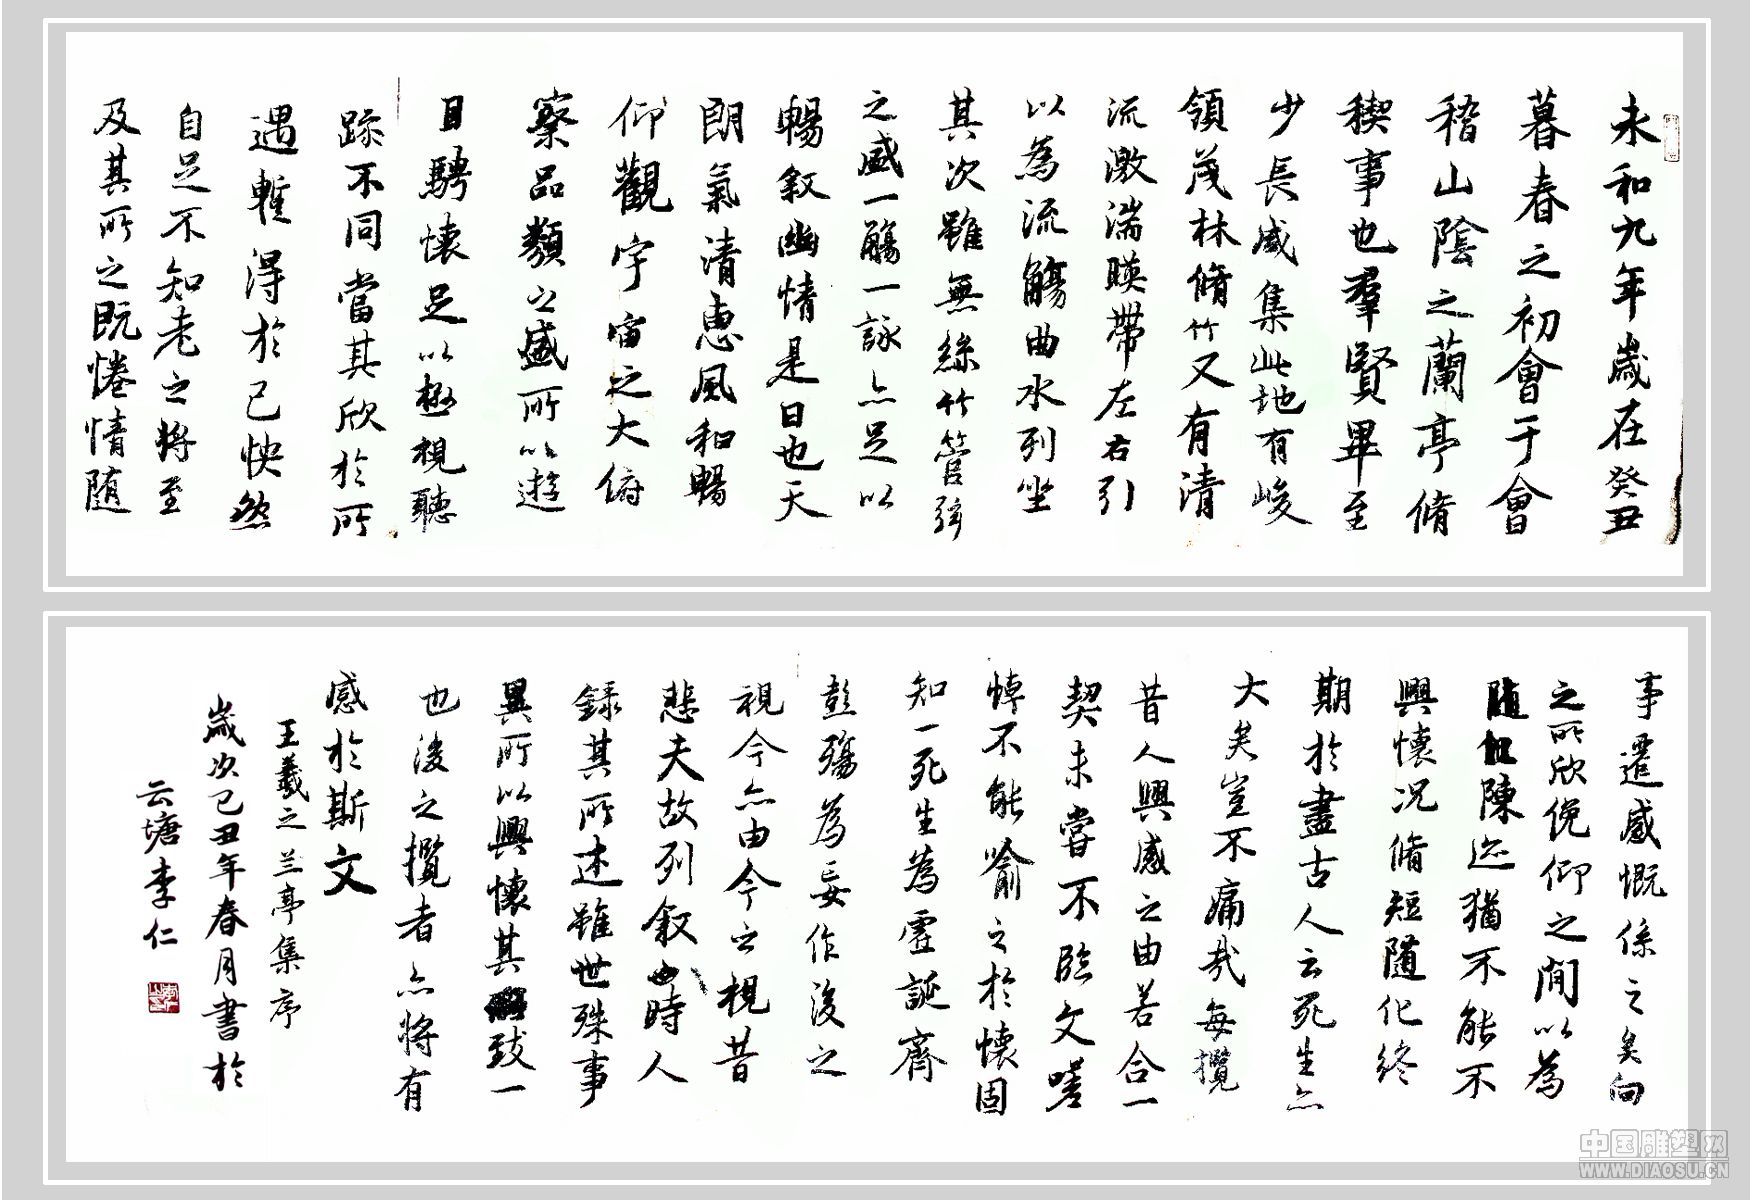 永和九年歲在癸丑
暮春之初會于會
稽山陰之蘭亭脩
稧事也羣賢畢至
少長咸集此地有峻
領茂林脩竹又有清
流激湍暎帶左右引
以為流觴曲水列坐
其次雖無絲竹管弦
之盛一觴一詠亦足以
暢叙幽情是日也天
朗氣清惠風和暢
仰觀宇宙之大俯
察品類之盛所以遊
目騁懷足以極視聽
不同當其欣於所
遇暫得於己快然
自足不知老之將至
及其所之既惓情隨
事遷感慨係之矣向
之所欣俛仰之間以為
陳迹猶不能不
興懷况脩短隨化終
期於盡古人云死生亦
大矣豈不痛哉每攬
昔人興感之由若合一
契未嘗不臨文嗟
悼不能喻之於懷固
知一死生為虛誕齊
彭殤為妄作後之
視今亦由今之視昔
悲夫故列叙時人
錄其所述雖世殊事
異所以興懷其致一
也後之攬者亦將有
感於斯文
王羲之兰亭集序
歲次己丑年春月書於
云塘李仁
中国雕塑网
WWW.DIAOSU.CN